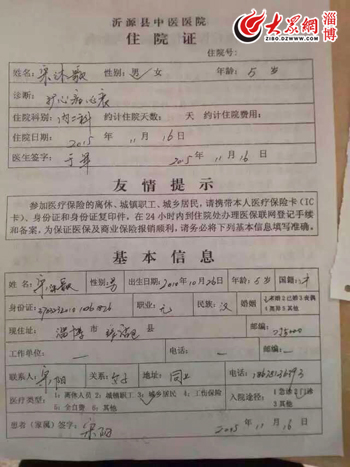 大众网 淄博
ZIBO.DZWWW.COM
沂源县中医医院
住院证
住院号:
姓名: 性别:男/女 年龄: 5 岁
诊断:
住院科别:内二科 约计住院天数: 天 约计住院费用:
住院日期: 2015 年 11 月 16 日
医生签字: 2015 年 11 月 16 日
友情提示
参加医疗保险的离休、城镇职工、城乡居民,请携带本人医疗保险卡(IC
卡)、身份证和身份证复印件,在24小时内到住院处办理医保联网登记手续
和备案,为保证医保及商业保险报销顺利,请务必将下列基本信息填写准确。
基本信息
姓名: 性别:男 出生日期:2010年10月26日 年龄:5岁 国籍:
身份证: 职业:无 民族:汉 婚姻:
现住址: 淄博 市 县 邮编:
工作单位: — 电话: — 邮编:
联系人: 阳 关系:父子 地址:同上 电话:
医疗类型: 1:离休人员 2:城镇职工 3:城乡居民 4:工伤保险 5:全自费 6:其他 入院途径: 1急诊 2门诊 3其他
患者(家属)签字: 阳 2015 年 11 月 16 日